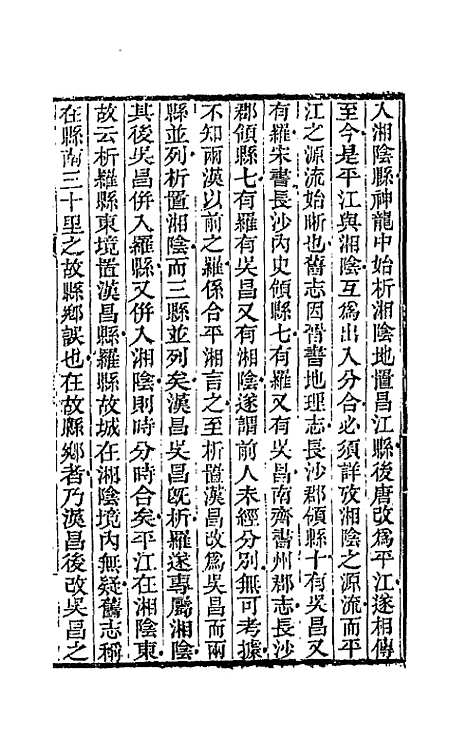 入湘陰縣神龍中始析湘陰地置昌江縣後唐改爲平江遂相傳
至今是平江與湘陰互爲出入分合必須詳攷湘陰之源流而平
江之源流始晰也舊志因晉書地理志長沙郡領縣十有吳昌又
有羅宋書長沙內史領縣七有羅又有吳昌南齊書州郡志長沙
郡領縣七有羅有吳昌又有湘陰遂謂前人未經分別無可考據
不知兩漢以前之羅係合平湘言之至析置漢昌改爲吳昌而兩
縣並列析置湘陰而三縣並列矣漢昌吳昌旣析羅遂專屬湘陰
其後吳昌併入羅縣又併入湘陰則時分時合矣平江在湘陰東
故云析羅縣東境置漢昌縣羅縣故城在湘陰境內無疑舊志稱
在縣南三十里之故縣鄉誤也在故縣鄉者乃漢昌後改吳昌之